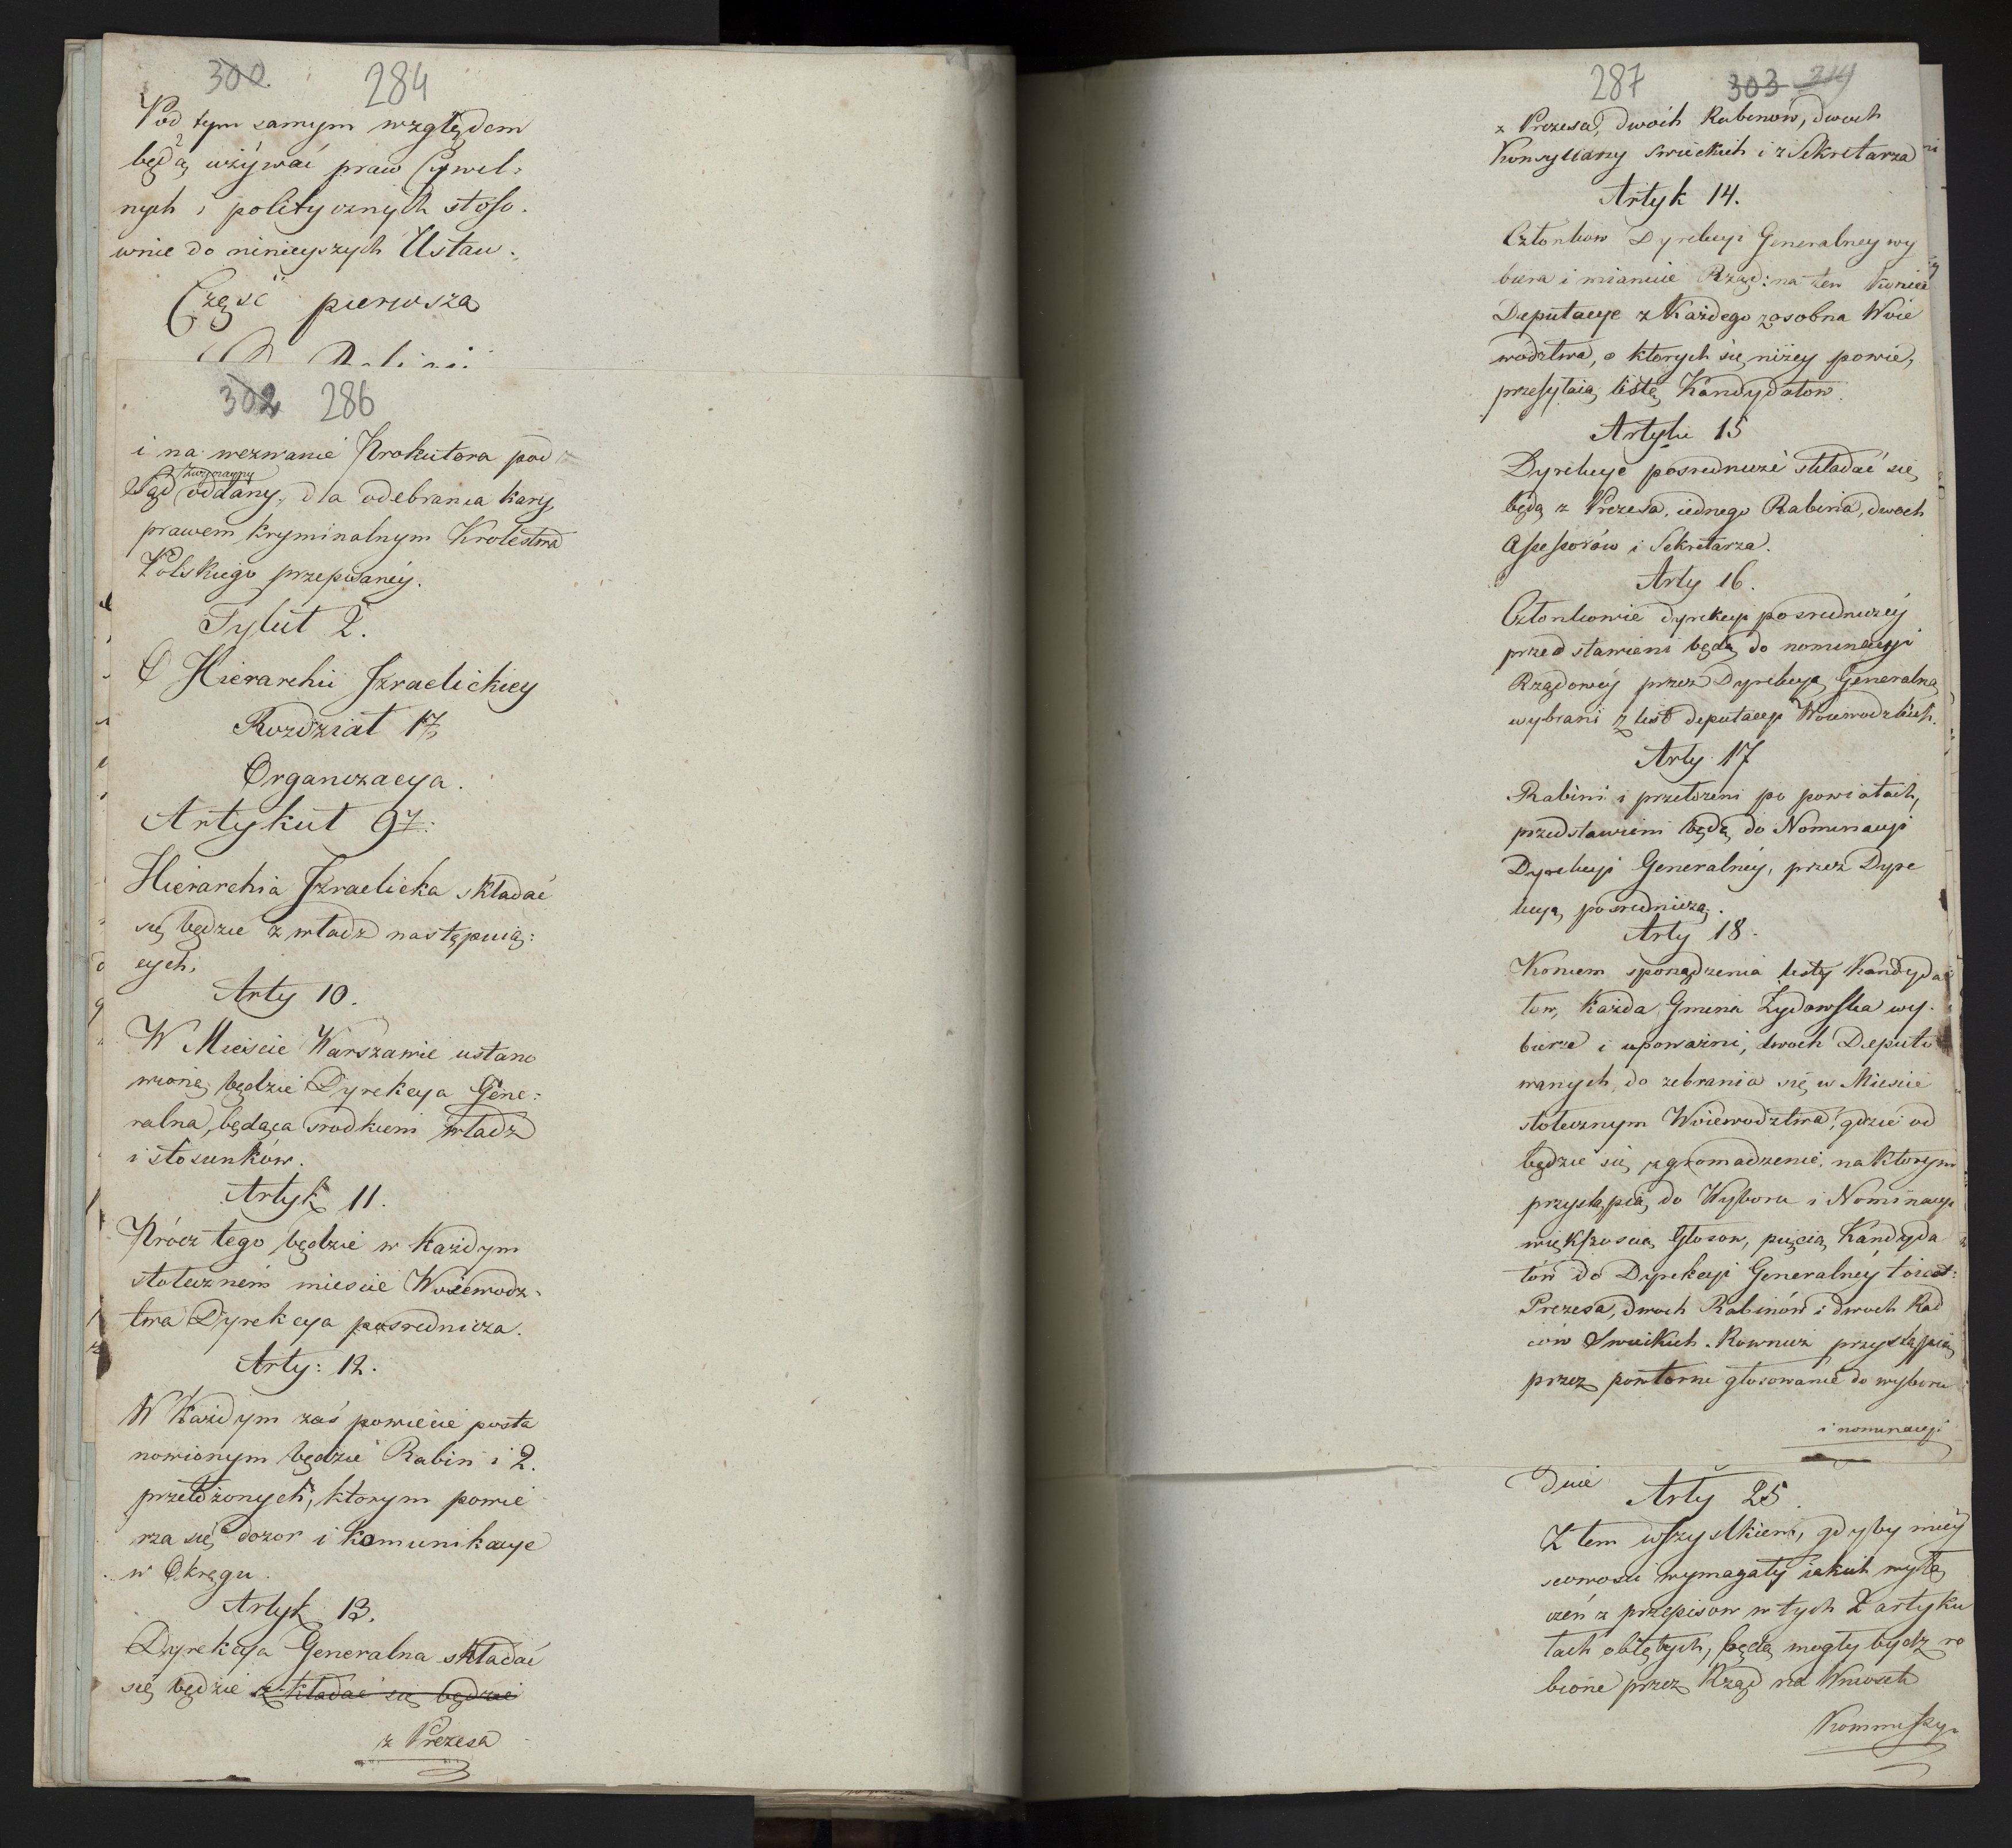 300 284
Pod tym samym względem
będą używać praw Cywil:
nych i politycznych stoso.
wnie do ninieyszych Ustaw.
Część pierwsza
302 286
i na wezwanie Prokutora pod
Sąd zwyczayny oddany, dla odebrania kary,
prawem kryminalnym Krolestwa
Polskiego przepisaney.
Tytuł 2.
O Hierarchii Izraelickiey
Rozdział 1y
Organizacya.
Artykuł 9y:
Hierarchia Izraelicka składać
się będzie z władz następuią:
cych.
Arty 10.
W Mieście Warszawie ustano
wioną będzie Dyrekcya Gene:
ralna, będąca srodkiem władz
i stosunków.
Artyk 11.
Prócz tego będzie w każdym
stołecznem miescie Woiewodz.
twa Dyrekcya posrednicza.
Arty: 12.
W Każdym zaś powiecie posta
nowionym będzie Rabin i 2.
przełożonych, ktorym powie
rza się dozor i komunikacye
w Okręgu.
Artyk 13.
Dyrekcya Generalna składać
się będzie składać się będzie
z Prezesa
287 303 214
z Prezesa, dwóch Rabinów, dwoch
Konsyliarzy swieckich i z Sekretarza
Artyk 14.
Członkow Dyrekcyi Generalney wy
biera i mianuie Rząd: na ten koniec
Deputacye z Każdego zosobna Woie
wodztwa, o ktorych się niżey powie,
przesyłaią listę Kandydatow.
Artyku 15
Dyrekcye posrednicze składać się
będą z Prezesa, iednego Rabina, dwoch
Assessorów i Sekretarza.
Arty 16.
Członkowie dyrekcyi posredniczey
przedstawieni będą do nominacyi
Rządowey przez Dyrekcyą Generalną
wybrani z list deputacyi Woiewodzkich.
Arty 17
Rabini i przełożeni po powiatach,
przedstawieni będą do Nominacyi
Dyrekcyi Generalney, przez Dyre
kcyą posredniczą.
Arty 18.
Koncem sporządzenia listy Kandyda
tow, każda Gmina Żydowska wy.
bierze i upoważni, dwoch Deputo
wanych, do zebrania się w Miescie
stołecznym Woiewodztwa, gdzie od
będzie się zgromadzenie, na ktorym
przystąpią do Wyboru i Nominacyi
większoscią Głosow, pięcią Kandyda
tów do Dyrekcyi Generalney to iest:
Prezesa, dwoch Rabinów i dwoch Rad
ców Swieckich. Rownież przystąpią
przez powtorne głosowanie do wyboru
i nominacyi
dnie
Arty 25.
Z tem wszystkiem, gdyby miey
scowosci wymagały iakich wyłą
czeń z przepisow w tych 2 artyku
łach obiętych, będą mogły bydz ro
bione przez Rząd na Wniosek
Kommissyi